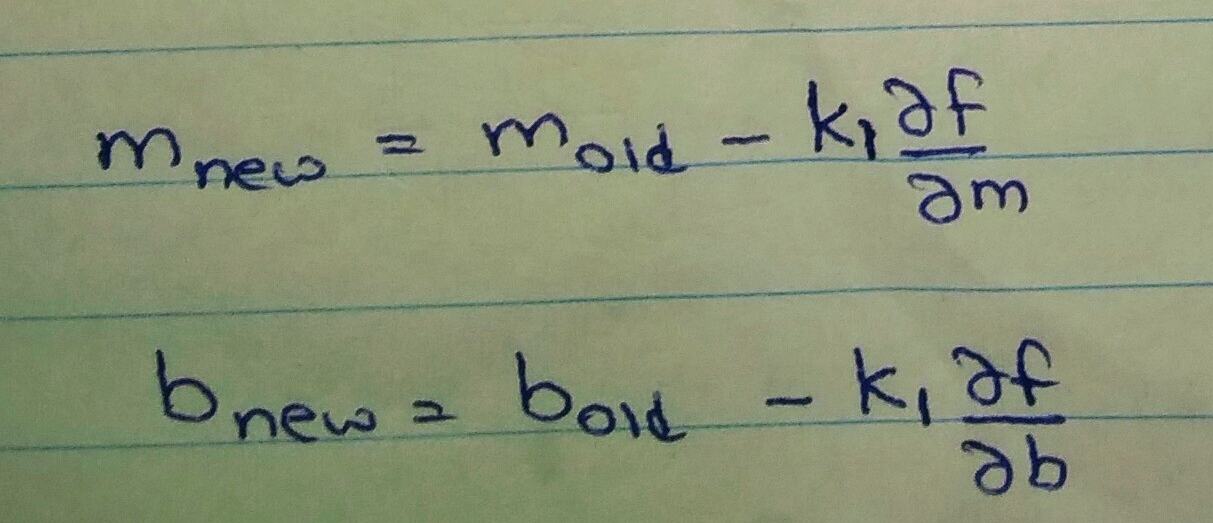 m_new = m_old - k₁ ∂f/∂m
b_new = b_old - k₁ ∂f/∂b